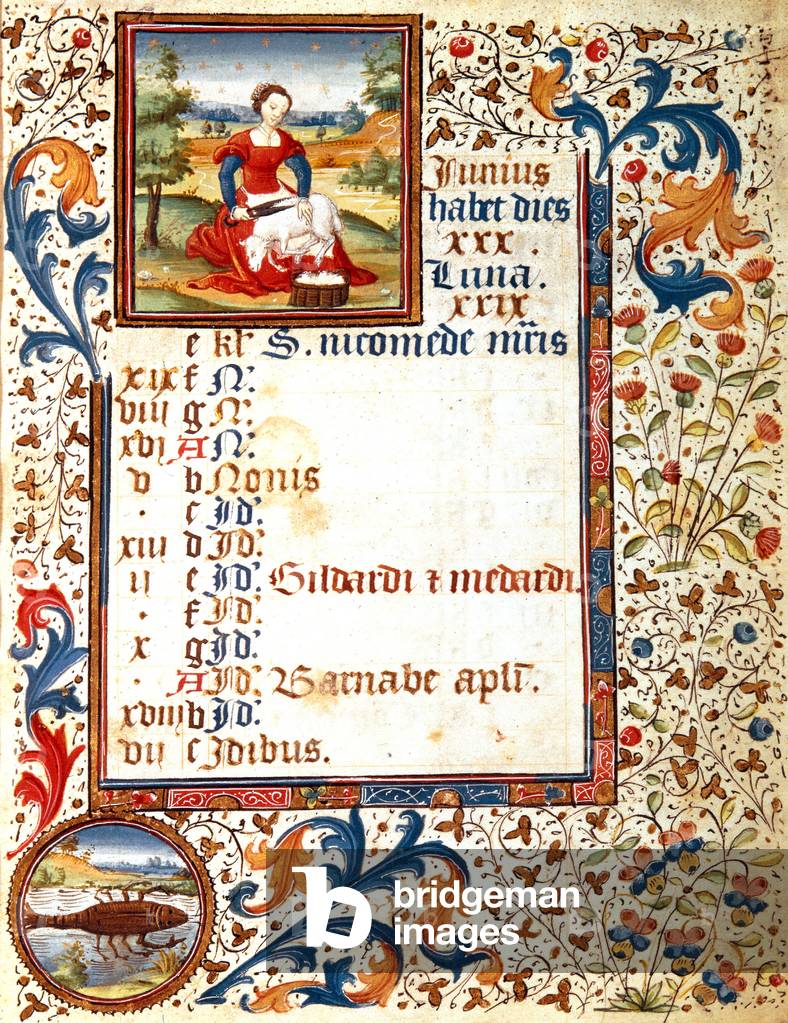 Junius
habet dies
xxx .
Luna.
xxix
e kł S. nicomede mr̃is
xix f N:
viii g N:
xvi A N:
v b Nonis
. c Jd:
xiii d Jd:
ii e Jd: Gildardi ⁊ medardi.
. f Jd:
x g Jd:
. A Jd: Barnabe apłi.
xviii b Jd:
vii c Jdibus.
b bridgeman
images